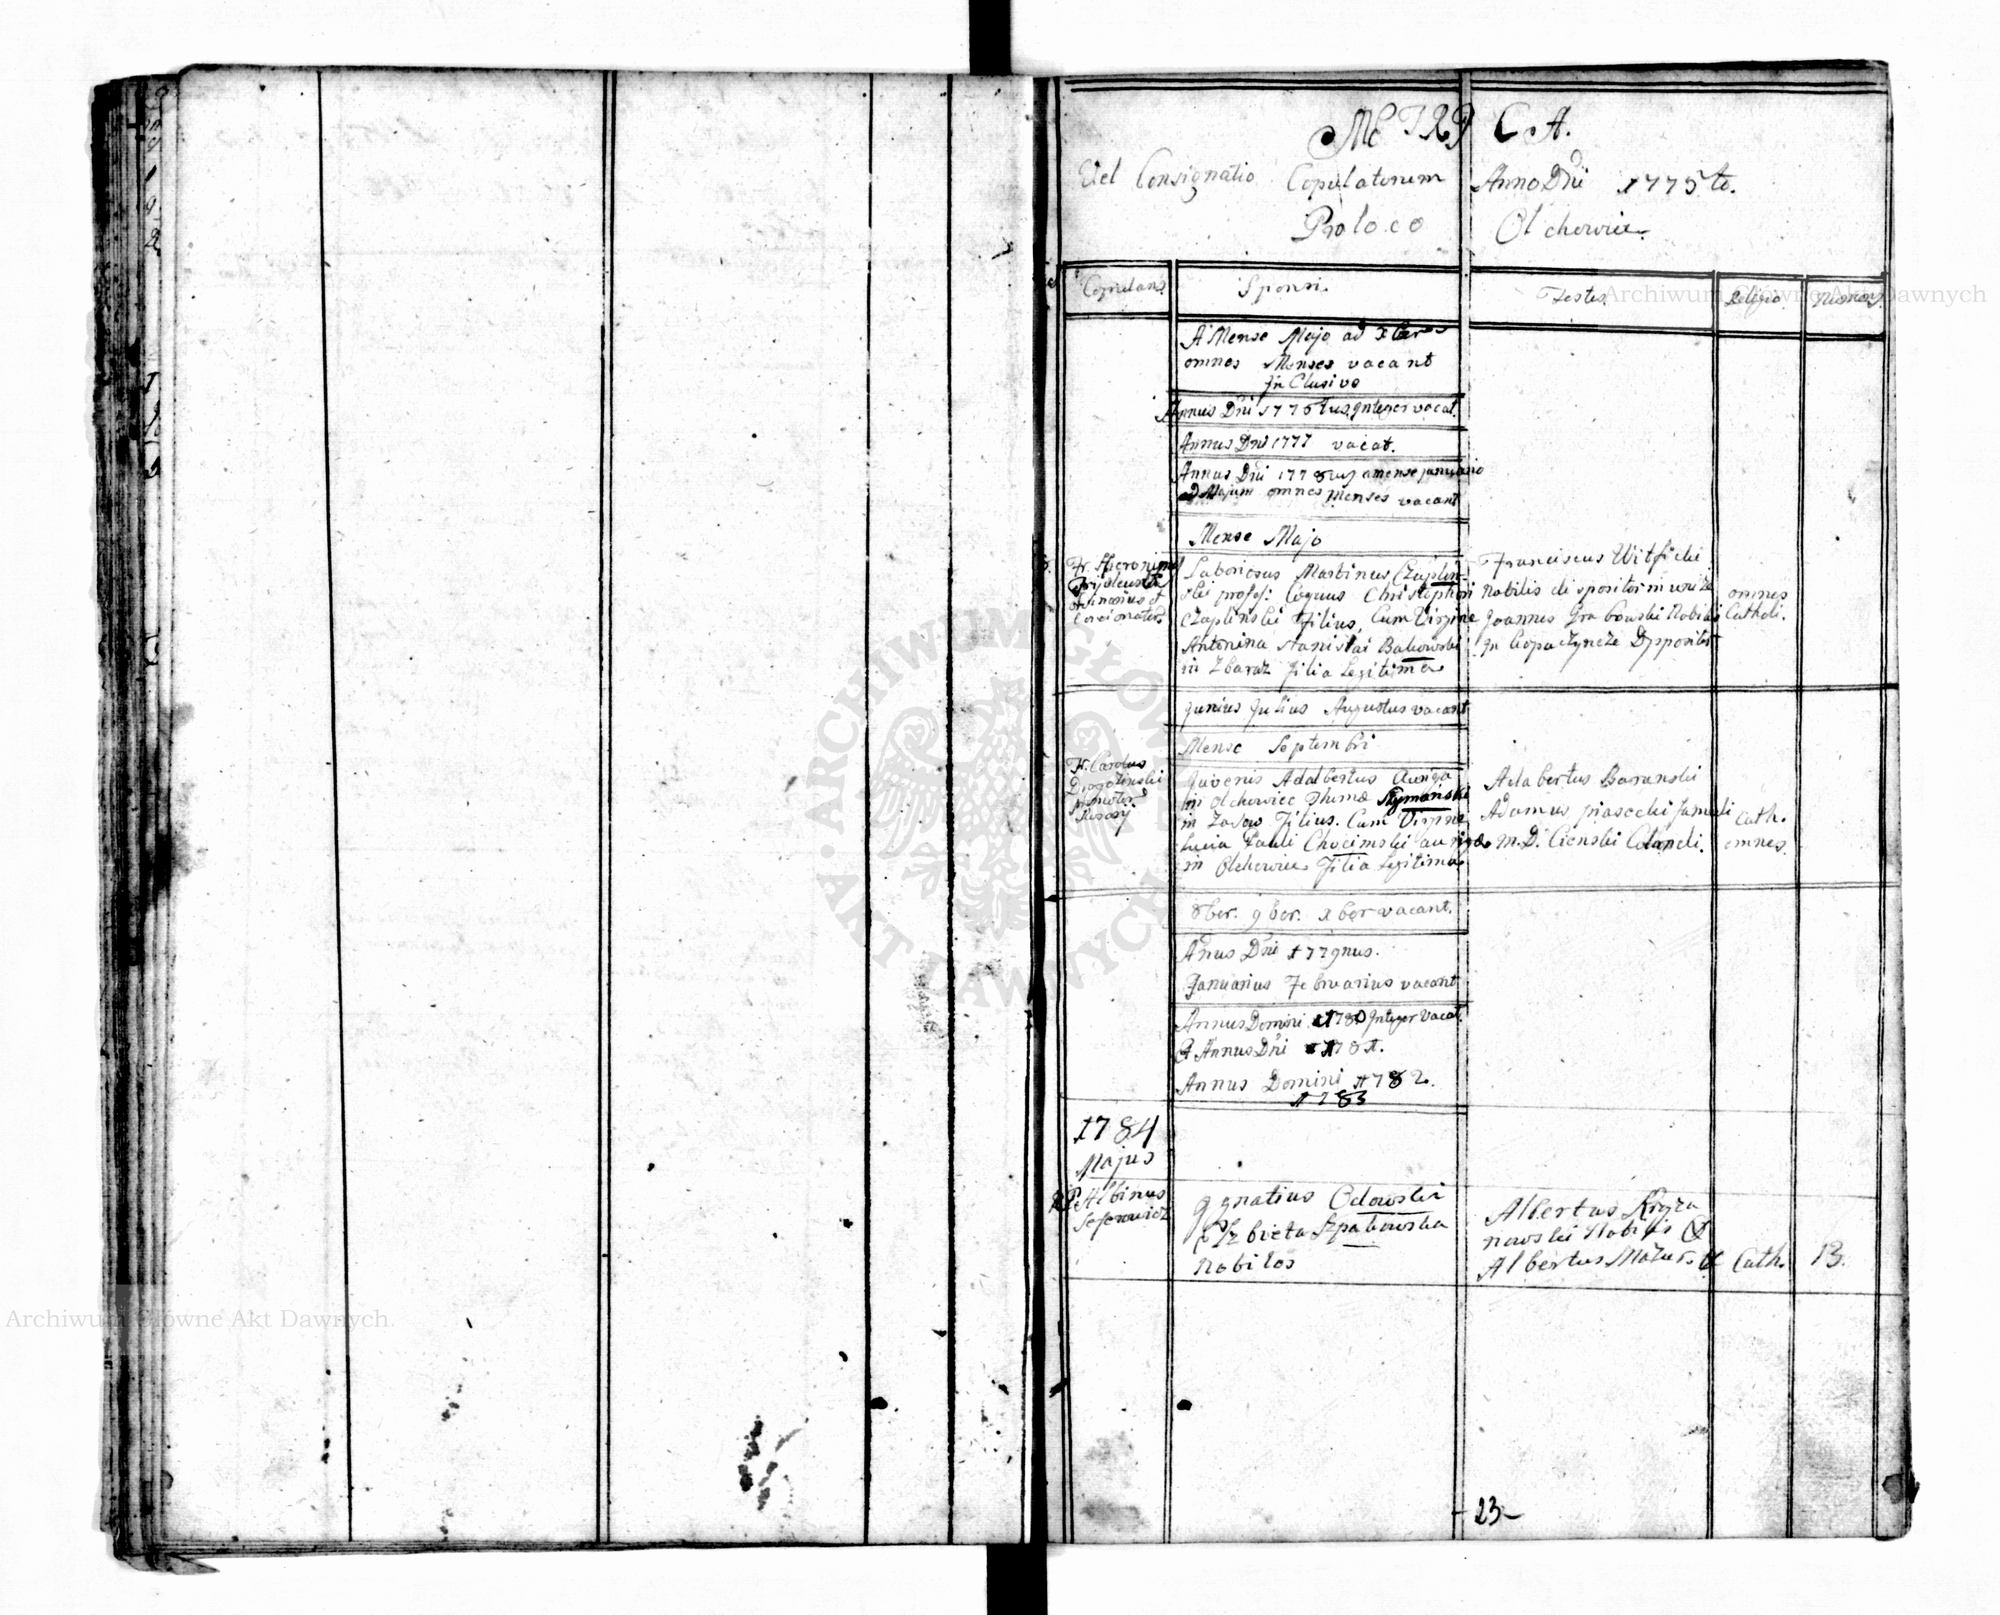 METRYCA.
Vel Consignatio Copulatorum Anno Dni 1775to.
Pro loco Olchowiec
Copulans. Sponsi. Testes. Religio
A Mense Majo ad Xber
omnes Menses vacant
InClusive
Annus Dni 1776tus Integer vacat.
Annus Dni 1777 vacat.
Annus Dni 1778vus a mense januario
ad Majum omnes Menses vacant
Mense Majo
Fr. Hieronimus
ordinarius et
Concionator
Laboriosus Martinus Czaplin-
ski profes: Coquus Christophori
Czaplinski Filius, Cum Virgine
Antonina Stanislai Bakowski
in Zbaraz Filia Legitima
Franciscus Witficki
Nobilis dispositor in
Joannes Grabowski Nobilis
In Copaczyncze Dyspositor
omnes
Catholi.
Junius Julius Augustus vacant
Mense Septembri
Fr. Carolus
Promotor
Rosary
Juvenis Adalbertus Auriga
in Olchowiec Thomæ Szymanski
in Filius. Cum Virgine
Lucia Pauli Chocimski aurigæ
in Olchowiec Filia Legitima
Adabertus Baranski
Adamus Piasecki Famuli
M. D. Cienski Coloneli.
Cath.
omnes
8ber. 9ber. Xber vacant.
Annus Dni 1779nus.
Januarius Februarius vacant
Annus Domini 1780 Integer vacat.
Et Annus Dni 1781.
Annus Domini 1782.
1783
1784
Majus
P. Albinus
Seferowicz
Ignatius Odowski
Elzbieta Szpakowska
Nobiles
Albertus Kryza
nowski Nobilis Et
Albertus Mazur
Cath. 13.
-23-
Archiwum Główne Akt Dawnych
Archiwum Główne Akt Dawnych
ARCHIWUM GŁÓWNE AKT DAWNYCH